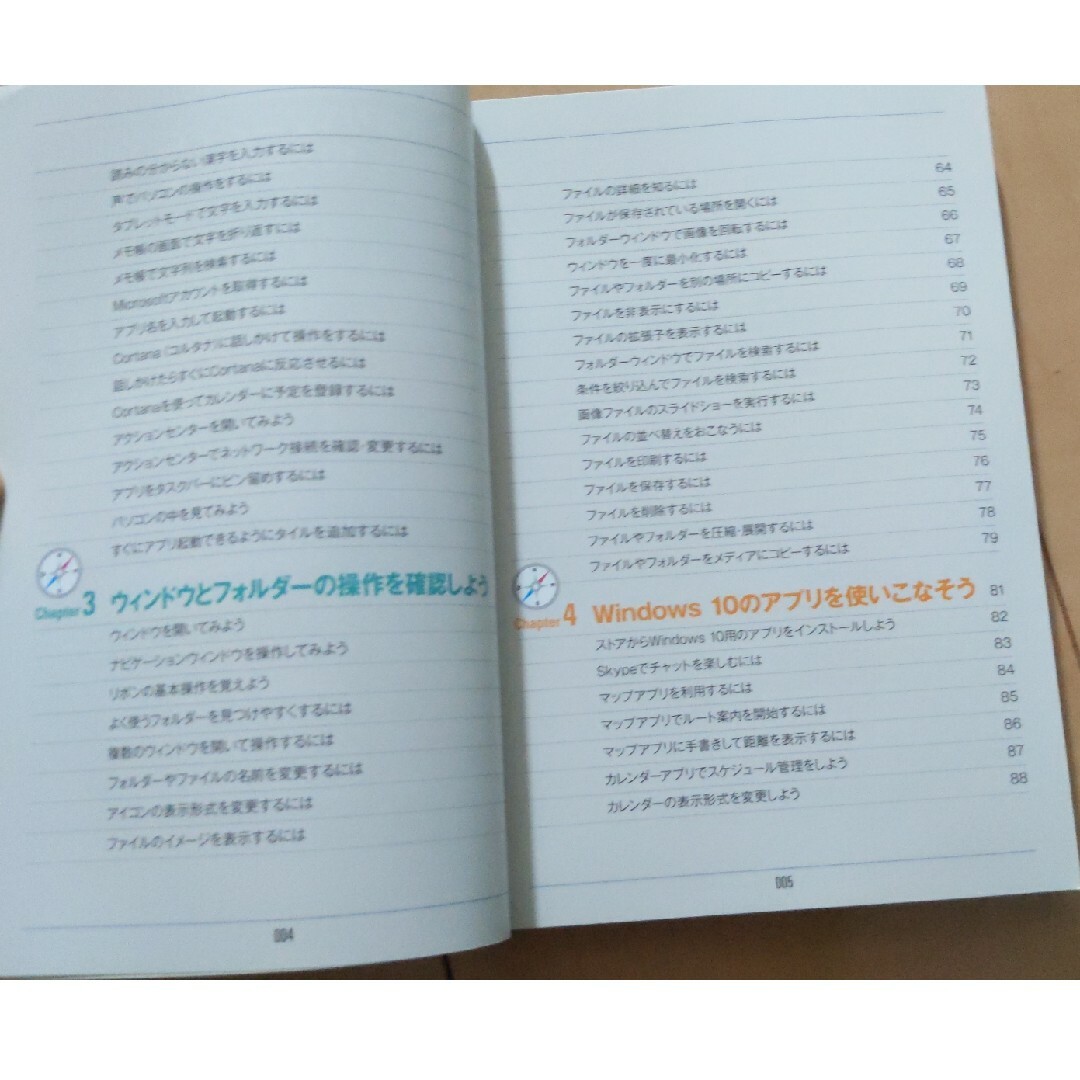 読みの分からない漢字を入力するには
声でパソコンの操作をするには
タブレットモードで文字を入力するには
メモ帳の画面で文字を折り返すには
メモ帳で文字列を検索するには
Microsoftアカウントを取得するには
アプリ名を入力して起動するには
Cortana（コルタナ）に話しかけて操作をするには
話しかけたらすぐにCortanaに反応させるには
Cortanaを使ってカレンダーに予定を登録するには
アクションセンターを開いてみよう
アクションセンターでネットワーク接続を確認・変更するには
アプリをタスクバーにピン留めするには
パソコンの中を見てみよう
すぐにアプリ起動できるようにタイルを追加するには
Chapter 3 ウィンドウとフォルダーの操作を確認しよう
ウィンドウを開いてみよう
ナビゲーションウィンドウを操作してみよう
リボンの基本操作を覚えよう
よく使うフォルダーを見つけやすくするには
複数のウィンドウを開いて操作するには
フォルダーやファイルの名前を変更するには
アイコンの表示形式を変更するには
ファイルのイメージを表示するには
004
ファイルの詳細を知るには 64
ファイルが保存されている場所を開くには 65
フォルダーウィンドウで画像を回転するには 66
ウィンドウを一度に最小化するには 67
ファイルやフォルダーを別の場所にコピーするには 68
ファイルを非表示にするには 69
ファイルの拡張子を表示するには 70
フォルダーウィンドウでファイルを検索するには 71
条件を絞り込んでファイルを検索するには 72
画像ファイルのスライドショーを実行するには 73
ファイルの並べ替えをおこなうには 74
ファイルを印刷するには 75
ファイルを保存するには 76
ファイルを削除するには 77
ファイルやフォルダーを圧縮・展開するには 78
ファイルやフォルダーをメディアにコピーするには 79
Chapter 4 Windows 10のアプリを使いこなそう 81
ストアからWindows 10用のアプリをインストールしよう 82
Skypeでチャットを楽しむには 83
マップアプリを利用するには 84
マップアプリでルート案内を開始するには 85
マップアプリに手書きして距離を表示するには 86
カレンダーアプリでスケジュール管理をしよう 87
カレンダーの表示形式を変更しよう 88
005